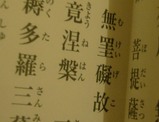 菩提薩
無罣礙故
むけいげこ
竟涅槃
きょうねはん
耨多羅三
たらさんみ